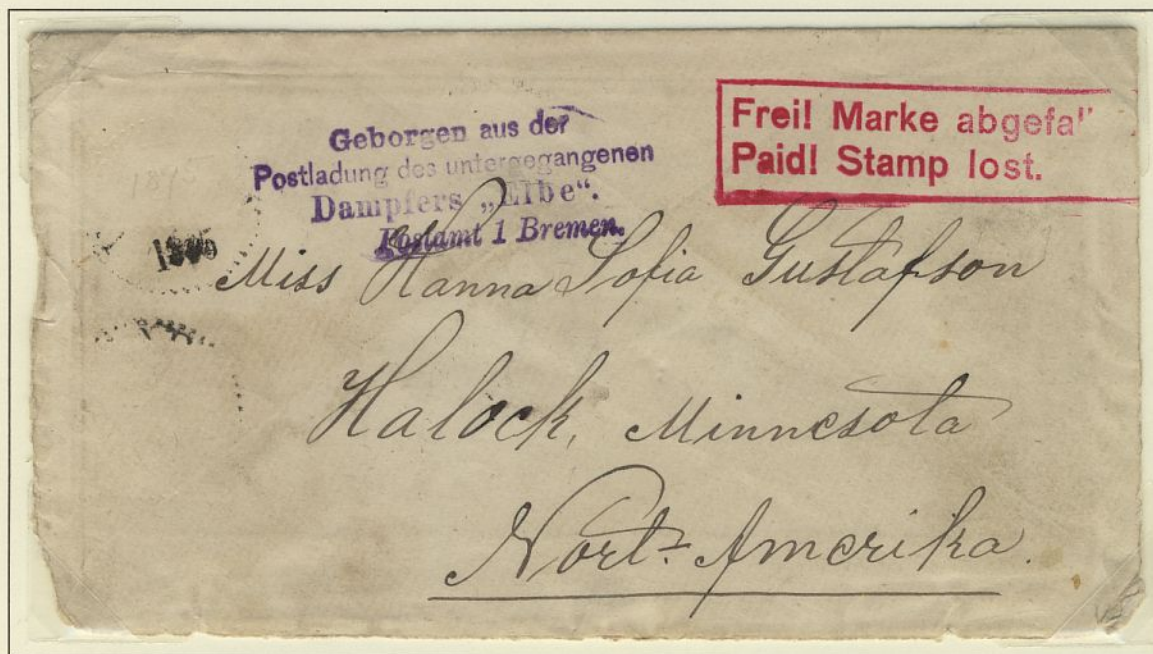 Geborgen aus der
Postladung des untergegangenen
Dampfers „Elbe“.
Postamt 1 Bremen.
Frei! Marke abgefal
Paid! Stamp lost.
1895
Miss Hanna Sofia Gustafson
Halock, Minnesota
Nort- Amerika.